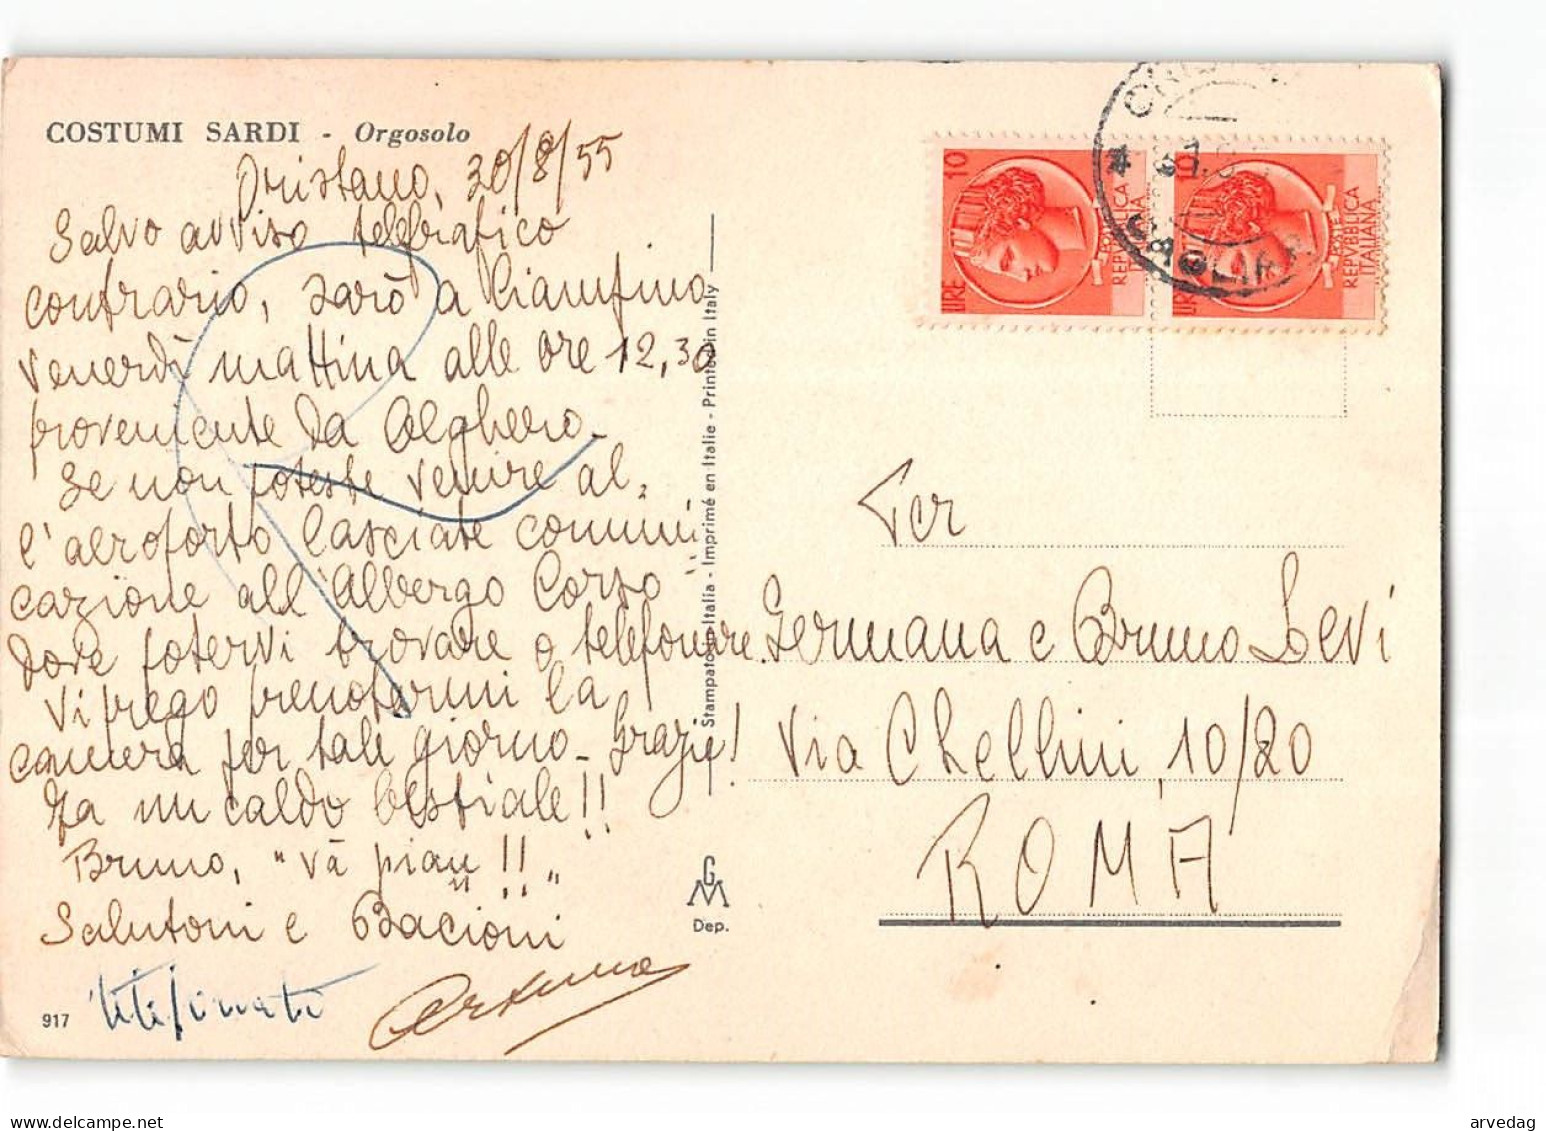 COSTUMI SARDI - Orgosolo
Oristano, 30/8/55
Salvo avviso telegrafico
contrario, sarò a Ciampino
venerdì mattina alle ore 12,30
proveniente da Alghero.
Se non poteste venire al,
l'aeroporto lasciate comuni
cazione all'Albergo Corso
dove potervi trovare o telefonare.
Vi prego prenotarmi la
camera per tale giorno - Grazie!
Fa un caldo bestiale!!
Bruno, "va pian!!"
Salutoni e Bacioni
917
Stampato in Italia - Imprimé en Italie - Printed in Italy
GM
Dep.
LIRE 10
POSTE
REPVBBLICA
ITALIANA
LIRE 10
POSTE
REPVBBLICA
ITALIANA
CAGLIARI
Per
Germana e Bruno Levi
Via Chellini, 10/20
ROMA
arvedag